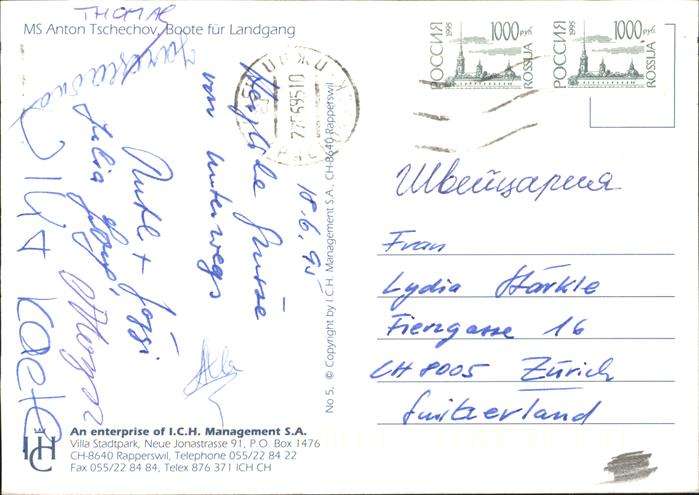 THOMAS
MS Anton Tschechov, Boote für Landgang
РОССИЯ 1995 1000 руб. ROSSIJA
РОССИЯ 1995 1000 руб. ROSSIJA
18.6.95
Herzliche Grüsse
von unterwegs
Ruth + Joggi
Julia
DIKA
KAETE
No 5. © Copyright by I.C.H. Management S.A., CH-8640 Rapperswil
Швейцария
Frau
Lydia Härkle
Fierzgasse 16
CH 8005 Zürich
Switzerland
ICH
An enterprise of I.C.H. Management S.A.
Villa Stadtpark, Neue Jonastrasse 91, P.O. Box 1476
CH-8640 Rapperswil, Telephone 055/22 84 22
Fax 055/22 84 84, Telex 876 371 ICH CH